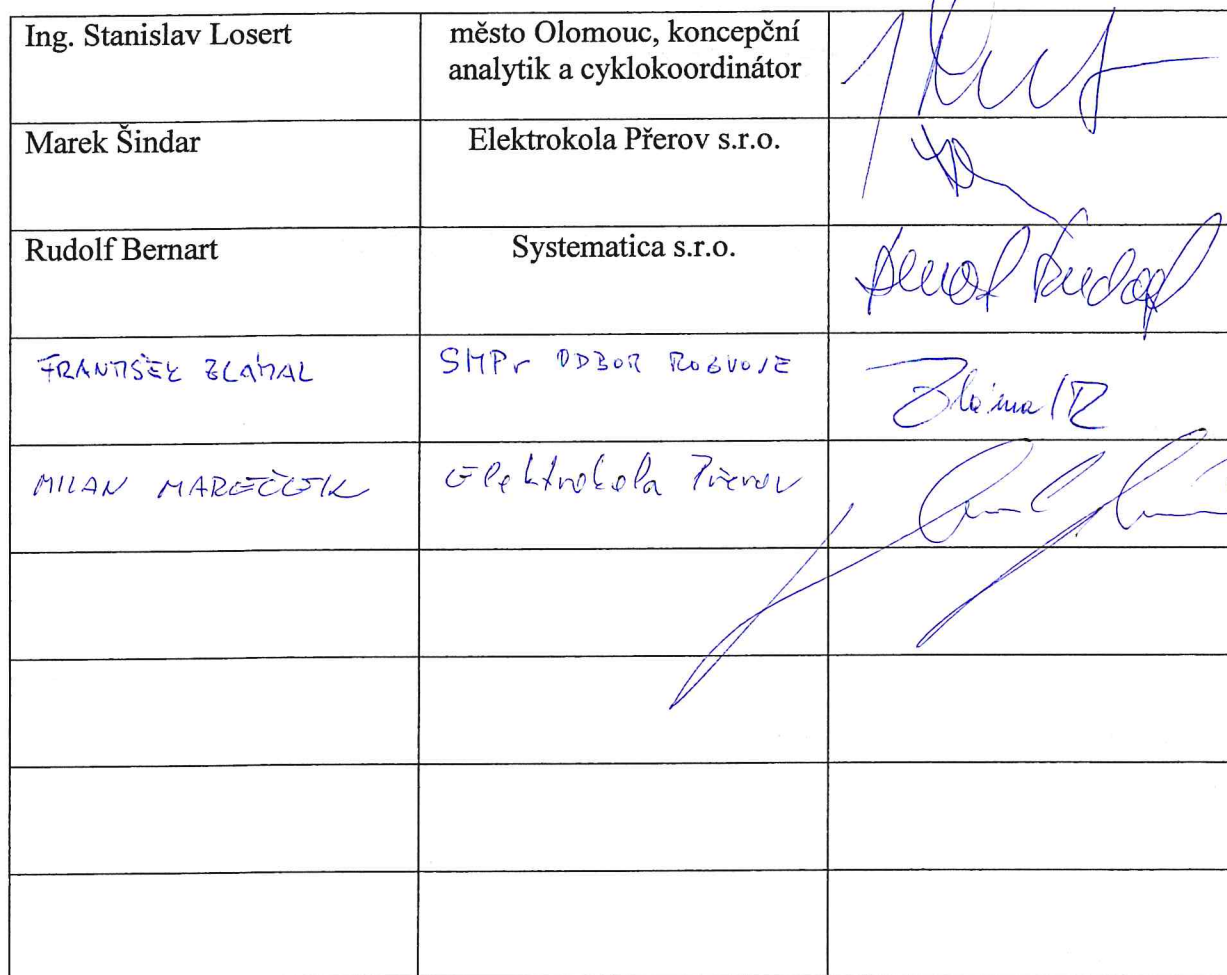 Ing. Stanislav Losert
město Olomouc, koncepční
analytik a cyklokoordinátor
Marek Šindar
Elektrokola Přerov s.r.o.
Rudolf Bernart
Systematica s.r.o.
FRANTIŠEK ZLÁMAL
SMPr ODBOR ROZVOJE
MILAN MAREČEK
Elektrokola Přerov